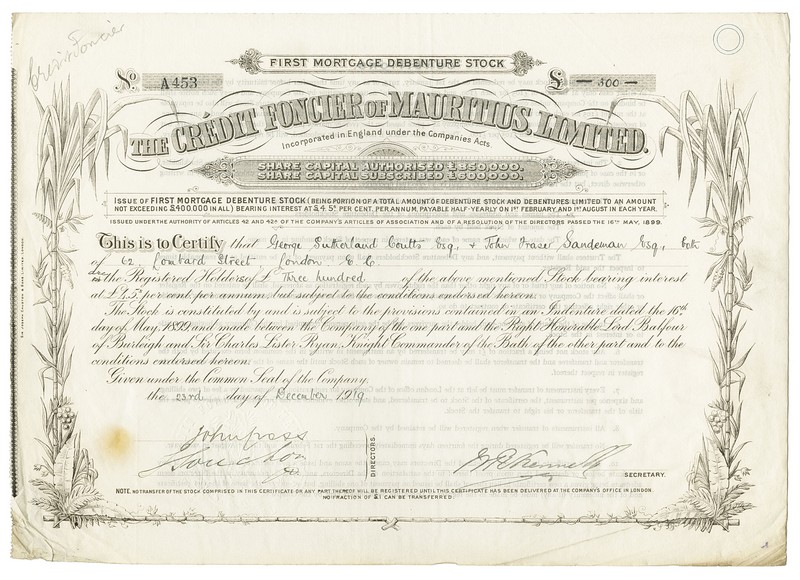 Crédit Foncier
FIRST MORTGAGE DEBENTURE STOCK
No. A 453
£ — 300 —
THE CRÉDIT FONCIER OF MAURITIUS, LIMITED.
Incorporated in England under the Companies Acts.
SHARE CAPITAL AUTHORISED £850,000.
SHARE CAPITAL SUBSCRIBED £600,000.
ISSUE OF FIRST MORTGAGE DEBENTURE STOCK (BEING PORTION OF A TOTAL AMOUNT OF DEBENTURE STOCK AND DEBENTURES LIMITED TO AN AMOUNT
NOT EXCEEDING £400,000 IN ALL) BEARING INTEREST AT £4.5s PER CENT. PER ANNUM, PAYABLE HALF-YEARLY ON 1ST FEBRUARY, AND 1ST AUGUST IN EACH YEAR.
ISSUED UNDER THE AUTHORITY OF ARTICLES 42 AND 42A OF THE COMPANY'S ARTICLES OF ASSOCIATION AND OF A RESOLUTION OF THE DIRECTORS PASSED THE 16TH MAY, 1899.
This is to Certify that George Sutherland Coutts Esq, & John Fraser Sandeman Esq, both
of 62 Lombard Street London. E.C.
are the Registered Holders of £ Three hundred of the above mentioned Stock bearing interest
at £4.5s per cent. per annum but subject to the conditions endorsed hereon:
The Stock is constituted by and is subject to the provisions contained in an Indenture dated the 16th
day of May, 1899 and made between the Company of the one part and the Right Honorable Lord Balfour
of Burleigh and Sir Charles Lister Ryan, Knight Commander of the Bath of the other part and to the
conditions endorsed hereon.
Given under the Common Seal of the Company,
the 23rd day of December 1919
DIRECTORS.
SECRETARY.
NOTE. NO TRANSFER OF THE STOCK COMPRISED IN THIS CERTIFICATE OR ANY PART THEREOF WILL BE REGISTERED UNTIL THIS CERTIFICATE HAS BEEN DELIVERED AT THE COMPANY'S OFFICE IN LONDON.
NO FRACTION OF £1 CAN BE TRANSFERRED.